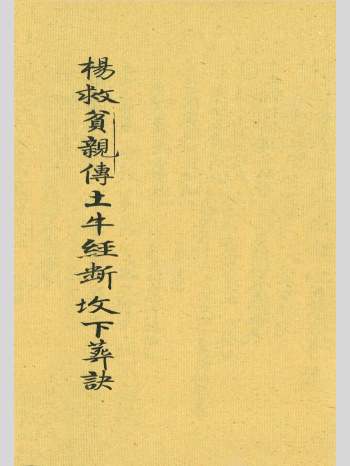 楊救貧親傳土牛經断坟下葬訣